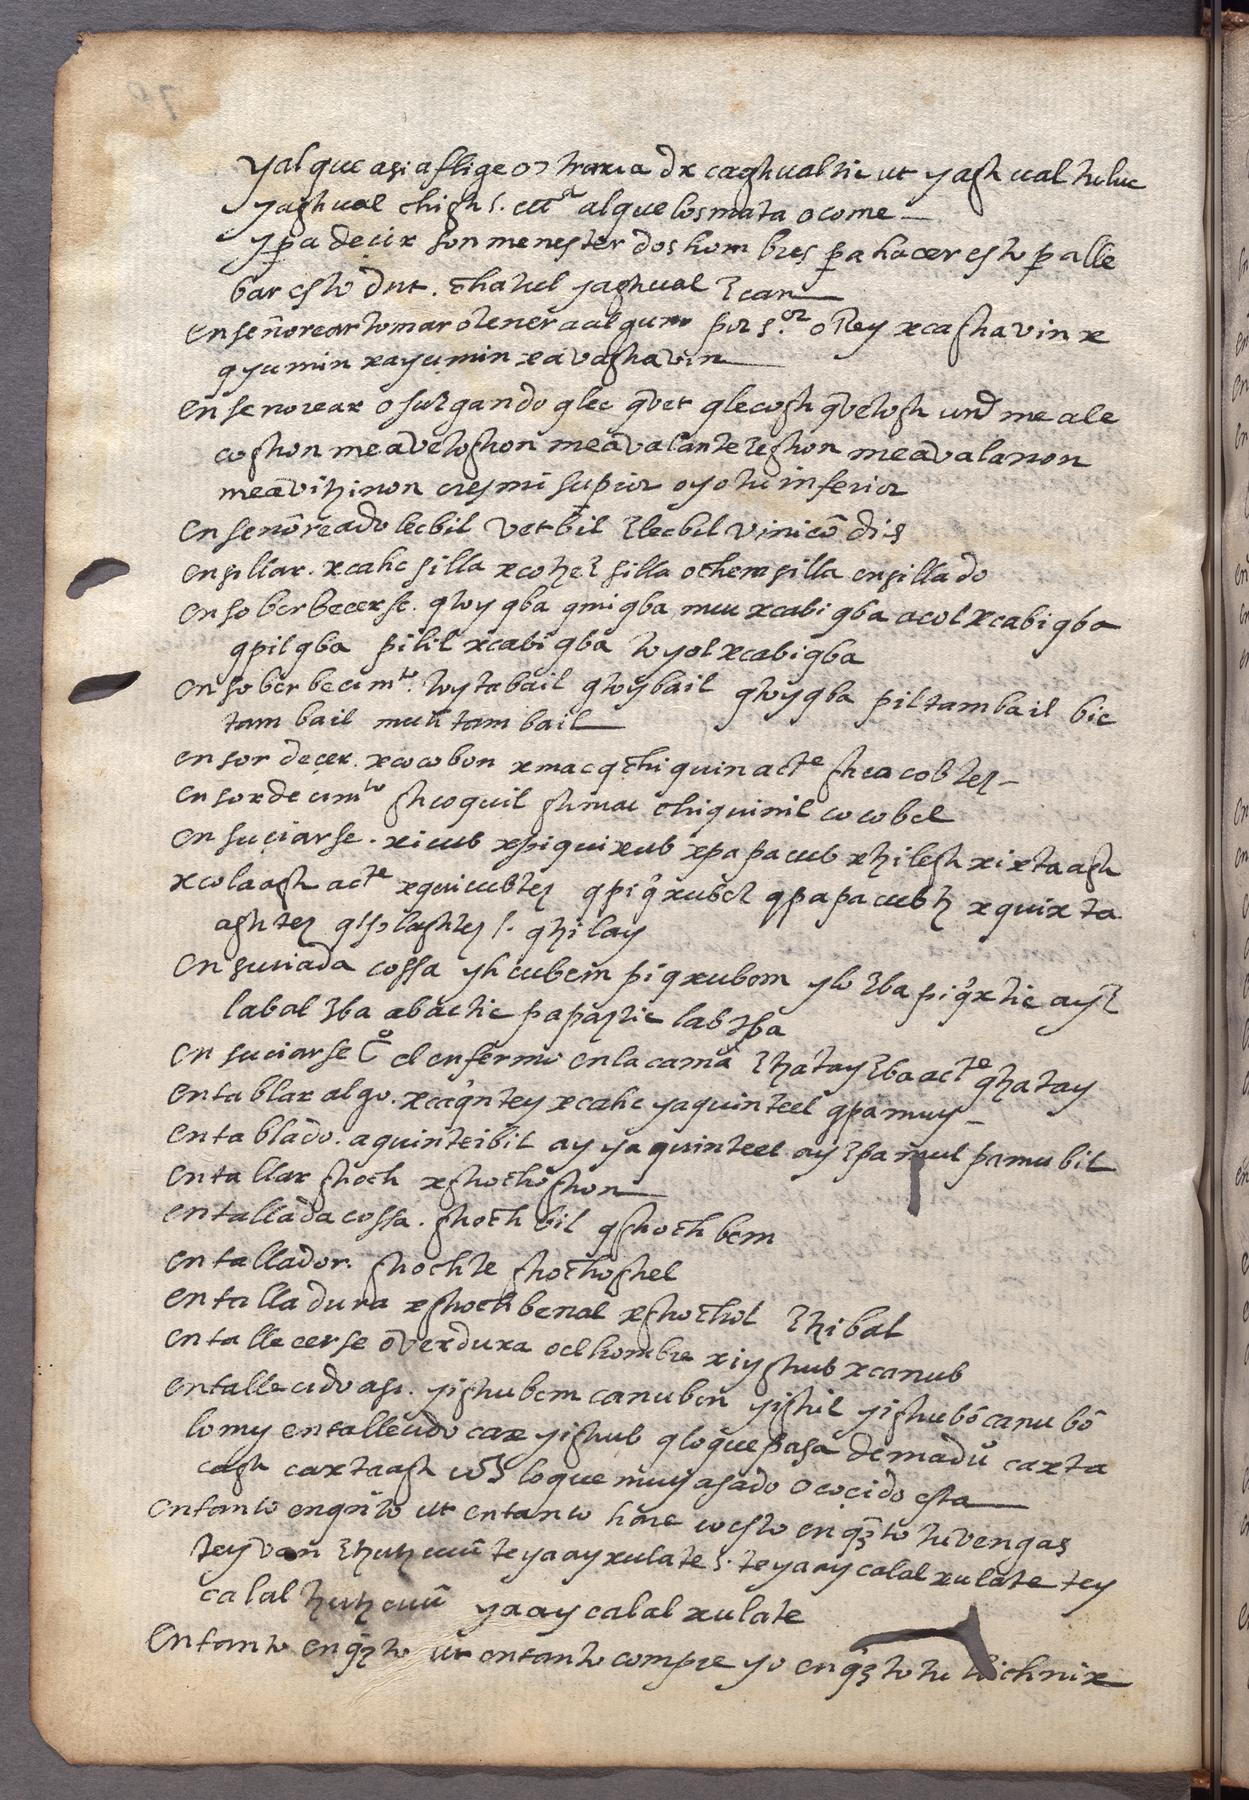 yal que asi aflige o traxia dr caghualtic ut yagh ual tuluc
yaghual chigh s. cutor al que los mata o come
y pa deçir son menester dos hombres pa hacer esto pa lle
bar esto dnt. chatul yaghual ꜫcan
enseñorear tomar o tener a algun por s.or o Rey xcaghavin x
qyumin xayumin xavaghavin
enseñorear o sulgando qlec qvet qlecogh qvetogh und me ale
coghon meavetoghon meavalanteleghon meavalanon
meavitzinon eres mi supior o yo tu inferior
enseñoreado lecbil vetbil ꜫlecbil vinicō dis
ensillar. xcahc silla xcotzeꜫ silla ochem silla ensillado
ensoberbecerse. qtoy qba qmiqba muu xcabi qba acol xcabi qba
qpil qba pilil xcabi qba toyol xcabiqba
ensoberbecimto. toytabail qtoybail qtoyqba piltambail bic
tambail muutambail
ensordeçer. xcocobon xmacqchiquin acte ghcacobtez
ensordecimto ghcoquil ghmac chiquinil cocobel
ensuçiarse. xicub xpiquixub xpapacub xtzilegh xixtaagh
xcolaagh acte xquicubtez qpiqxubel qpapacubtz xquixta
aghtez qꜫolaghtez s. qtzilay
ensuciada cossa ytzcubem piqxubem ylo ꜫba piqxtic ayꜫ
labal ꜫba abactic papaztic labꜫba
ensuciarse C el enfermo en la cama ꜫtzatay ꜫba acte qtzatay
entablar algo. xcaqntey xcahc yaquinteel qpamuy
entablado. aquinteibil ay yaquinteel ay ꜫpamul pamubil
entallar ghoch xghochoghon
entallada cossa. ghochbil qghochbem
entallador. ghochte ghochoghel
entalladura xghochbenal xghochol ꜫtzibal
entallecerse o verdura o el hombre xiyghub xcanub
entallecido asi. yighubem canuben yighil yighubō canubō
lo my entallecido cax yighub qlo que pasa de maduo caxta
cagh caxtaagh coꜫ lo que muy asado o coçido esta
entanto enqnto ut entanto hace co esto enqnto tu vengas
tey van ꜫtzutzcuū teyaay xulate s. teyaay calal xulate tey
calal tzutzcuū yaay calal xulate
entanto enqnto ut entanto compre yo enqnto tu chnix